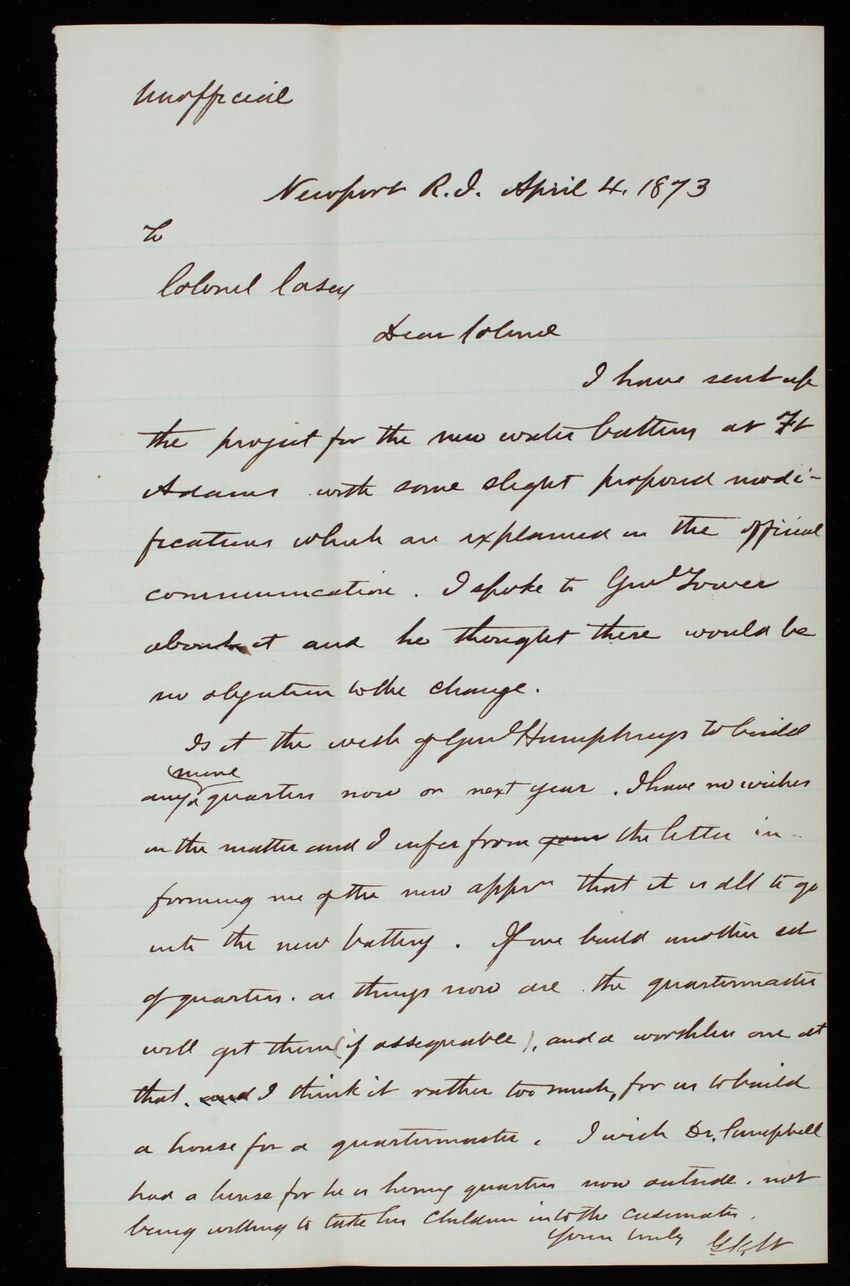 Unofficial
Newport R.I. April 4. 1873
To
Colonel Casey
Dear Colonel
I have sent up
the project for the new water battery at Ft
Adams with some slight proposed modi-
fications which are explained in the official
communication. I spoke to Genl Tower
about it and he thought there would be
no objection to the change.
Is it the wish of Genl Humphreys to build
more
any quarters now or next year. I have no wishes
in the matter and I infer from your the letter in-
forming me of the new appn that it is all to go
into the new battery. If we build another set
of quarters. as things now are the quartermaster
will get them (if assignable), and a worthless one at
that. and I think it rather too much, for us to build
a house for a quartermaster. I wish Dr. Campbell
had a house for he is hiring quarters now outside. not
being willing to take his children into the casemates.
Yours truly G.K.W